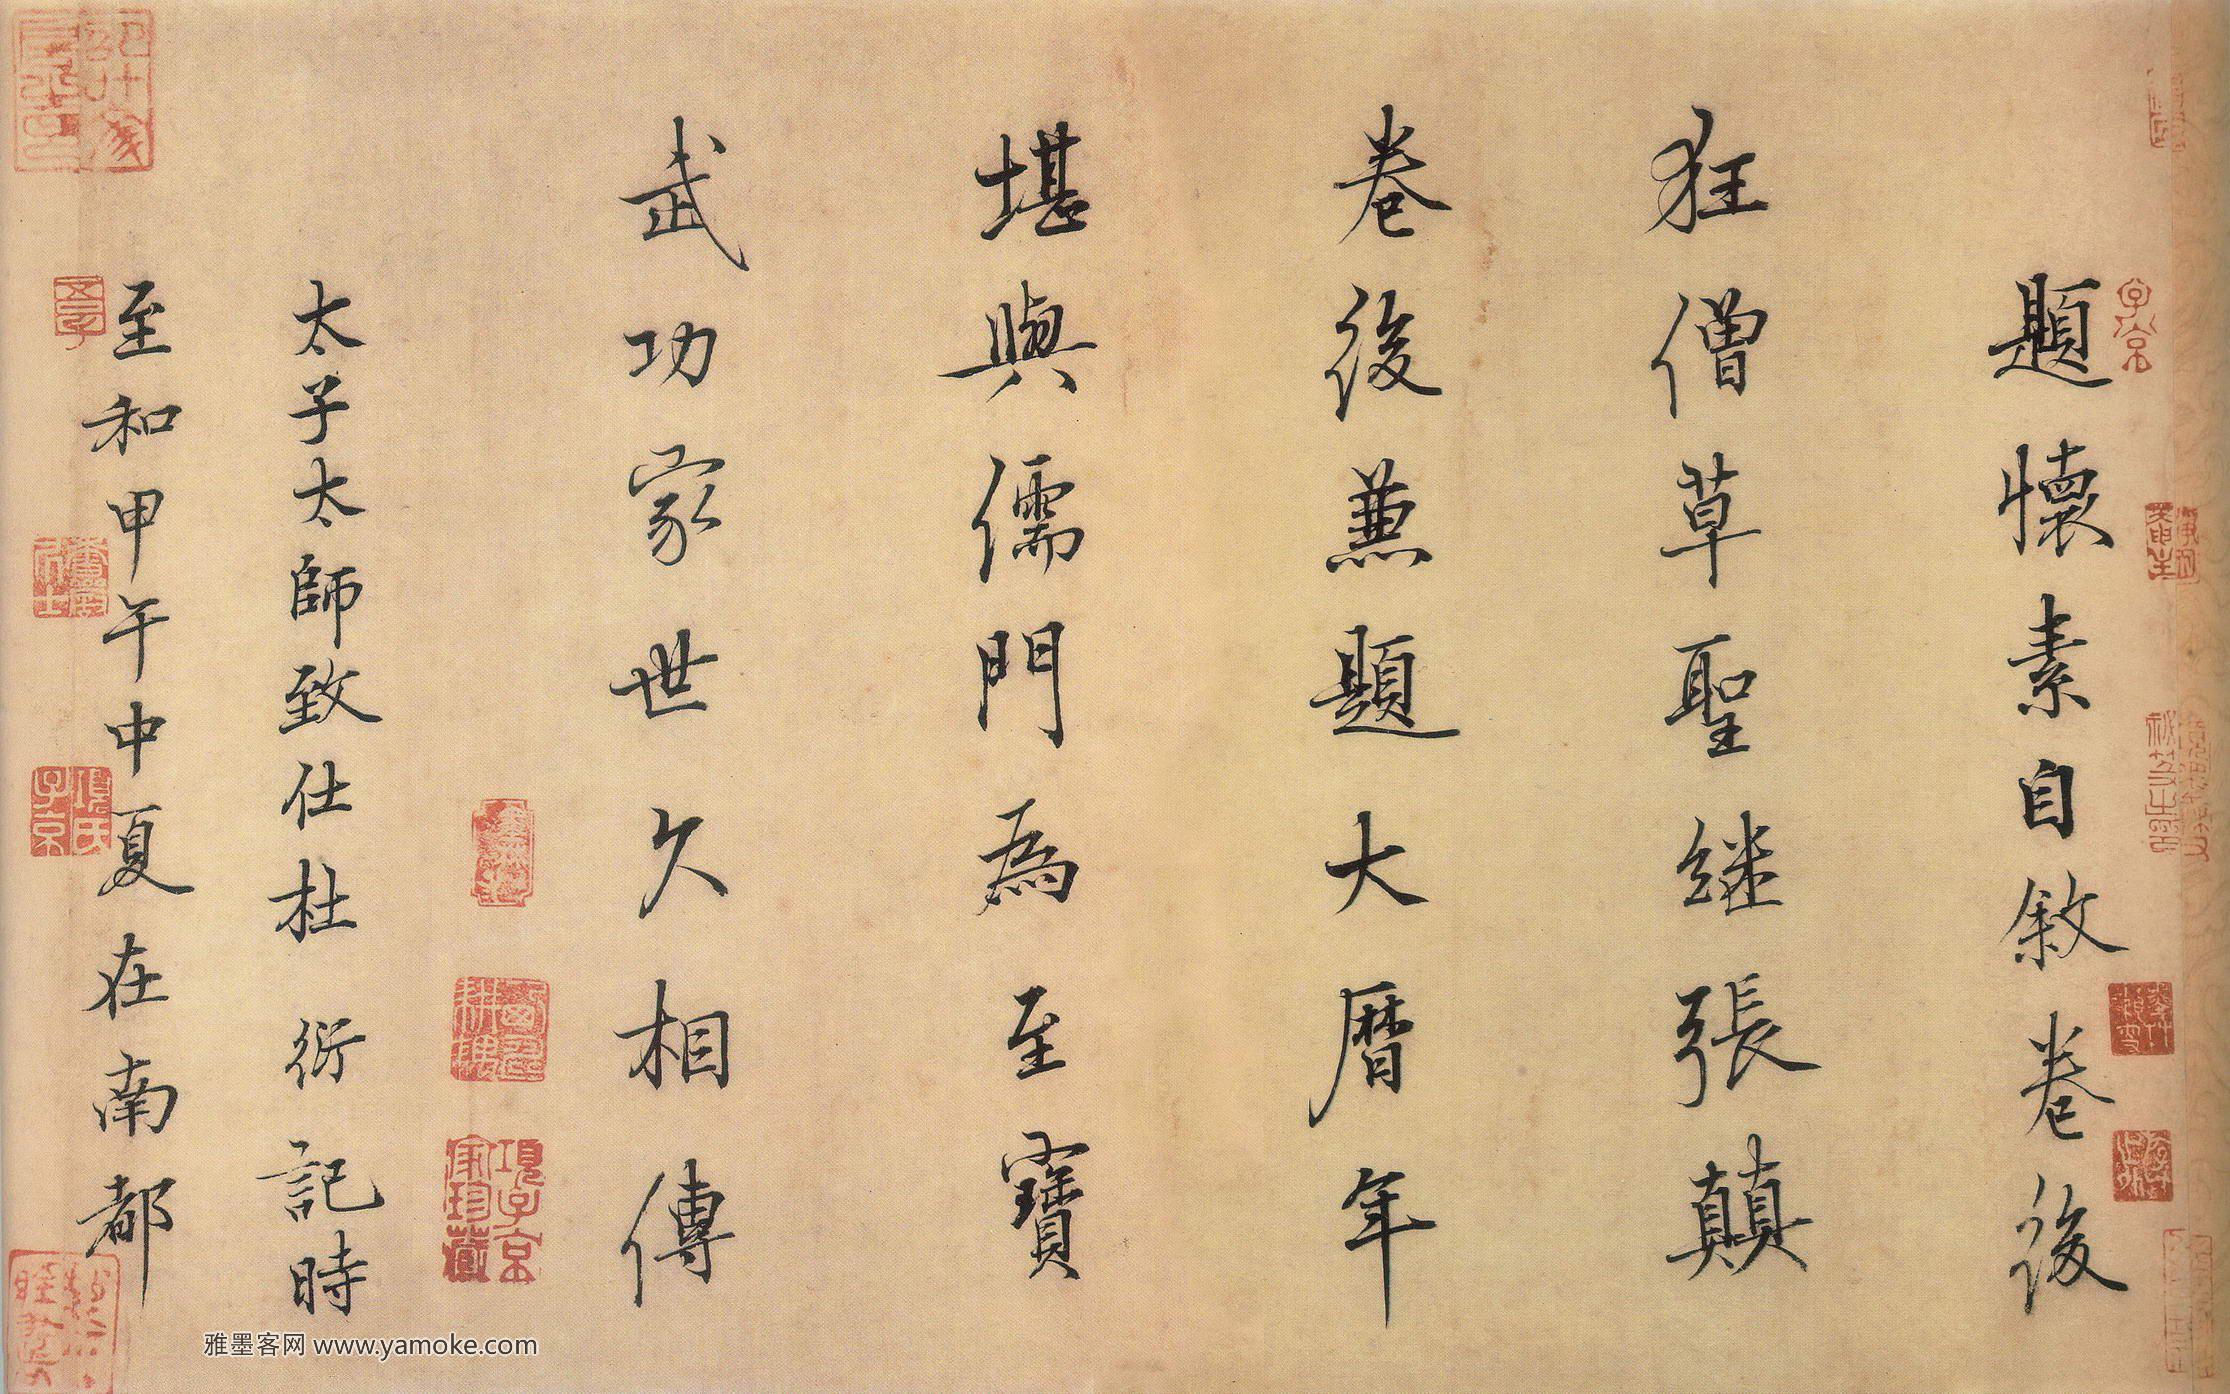 題懷素自敘卷後
狂僧草聖継張顛
卷後蒹題大曆年
堪與儒門為至寶
武功家世久相傳
太子太師致仕杜衍記時
至和甲午中夏在南都
項子京家珍藏
項氏子京
子京
雅墨客网 www.yamoke.com